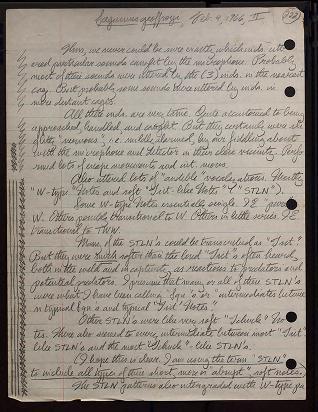 Saguinus geoffroyi, Feb. 4, 1966, II
Thus, we never could be sure exactly which inds. utt-
ered particular sounds caught by the microphone. Probably
most of these sounds were uttered by the (3) inds. in the nearest
cage. But probably some sounds were uttered by inds. in
more distant cages.
All these inds. are very tame. Quite accustomed to being
approached, handled, and caught. But they certainly were
"nervous", i.e. mildly alarmed, by our fiddling about
with the microphone and detectors in their close vicinity. Perfor-
med lots of escape movements and int. movs.
Also uttered lots of "audible" vocalizations. Mostly
"W-type" Notes and soft "Tsit-like Notes" ("STLN").
Some W-type Notes essentially single. I.E. "pure"
W. Others possibly transitional to W. Others in little series. I.E.
transitional to TWW.
Many of the STLN's could be transcribed as "Tsit".
But they were much softer than the loud "Tsit's" often heard,
both in the wild and in captivity, as reactions to predators and
potential predators. I presume that many or all of these STLN's
were what I have been calling or intermediates between
typical and typical "Tsit" Notes.
Other STLN's were like very soft "Tschuck" No-
tes. There also seemed to every intermediate between most "Tsit"
like STLN's and the most "Tschuck"-like STLN's.
(I hope this is clear. I am using the term "STLN"
to include all types of these short, more or less abrupt, soft notes.
The STLN patterns also intergraded with W-type